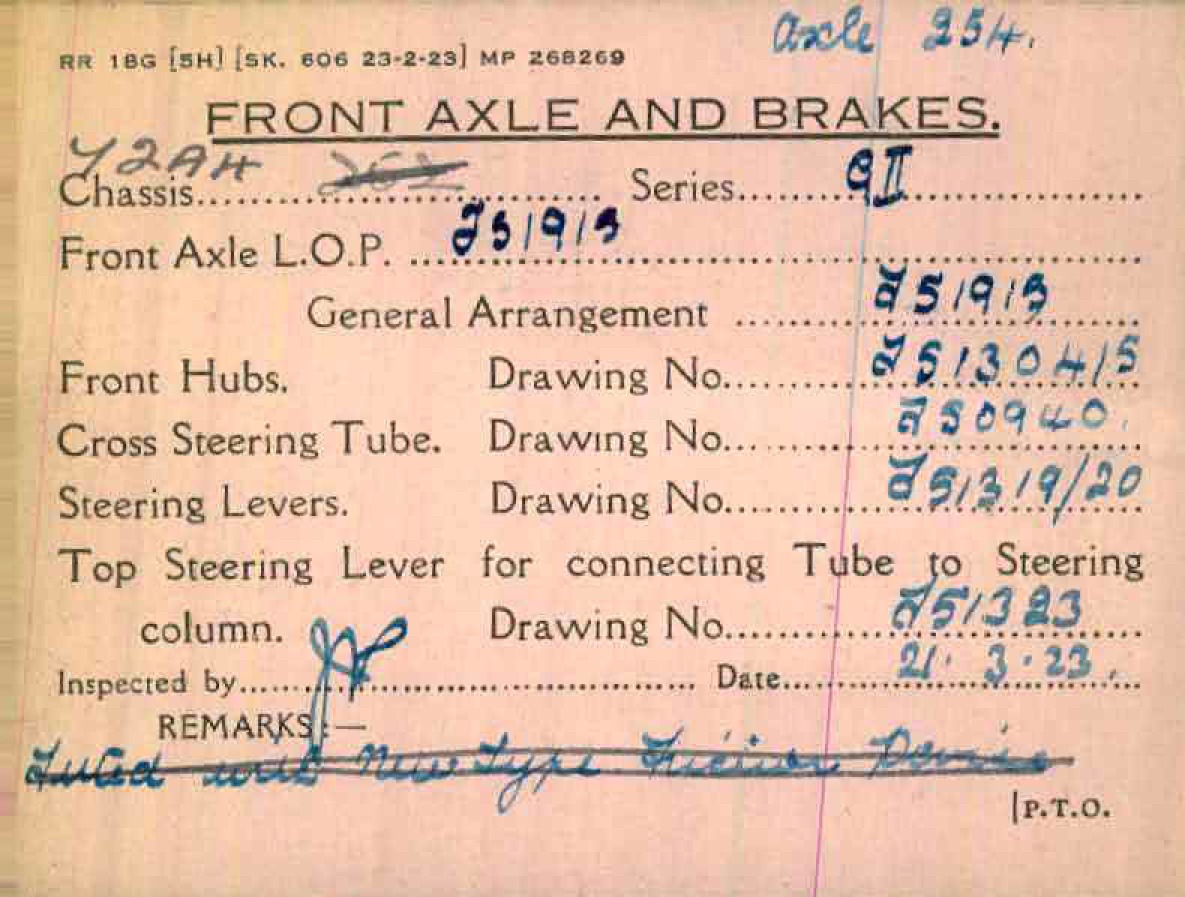 Axle 254.
RR 18G [5H] [SK. 606 23-2-23] MP 268269
FRONT AXLE AND BRAKES.
Y2AH 262
Chassis.......... Series.......... GII
Front Axle L.O.P. .......... F51913
General Arrangement .......... F51913
Front Hubs. Drawing No.......... F51304/5
Cross Steering Tube. Drawing No.......... F50940.
Steering Levers. Drawing No.......... F51319/20
Top Steering Lever for connecting Tube to Steering
column. Drawing No.......... F51323
Inspected by.......... Date.......... 21.3.23.
REMARKS:—
Fitted with New Type Friction Device
[P.T.O.